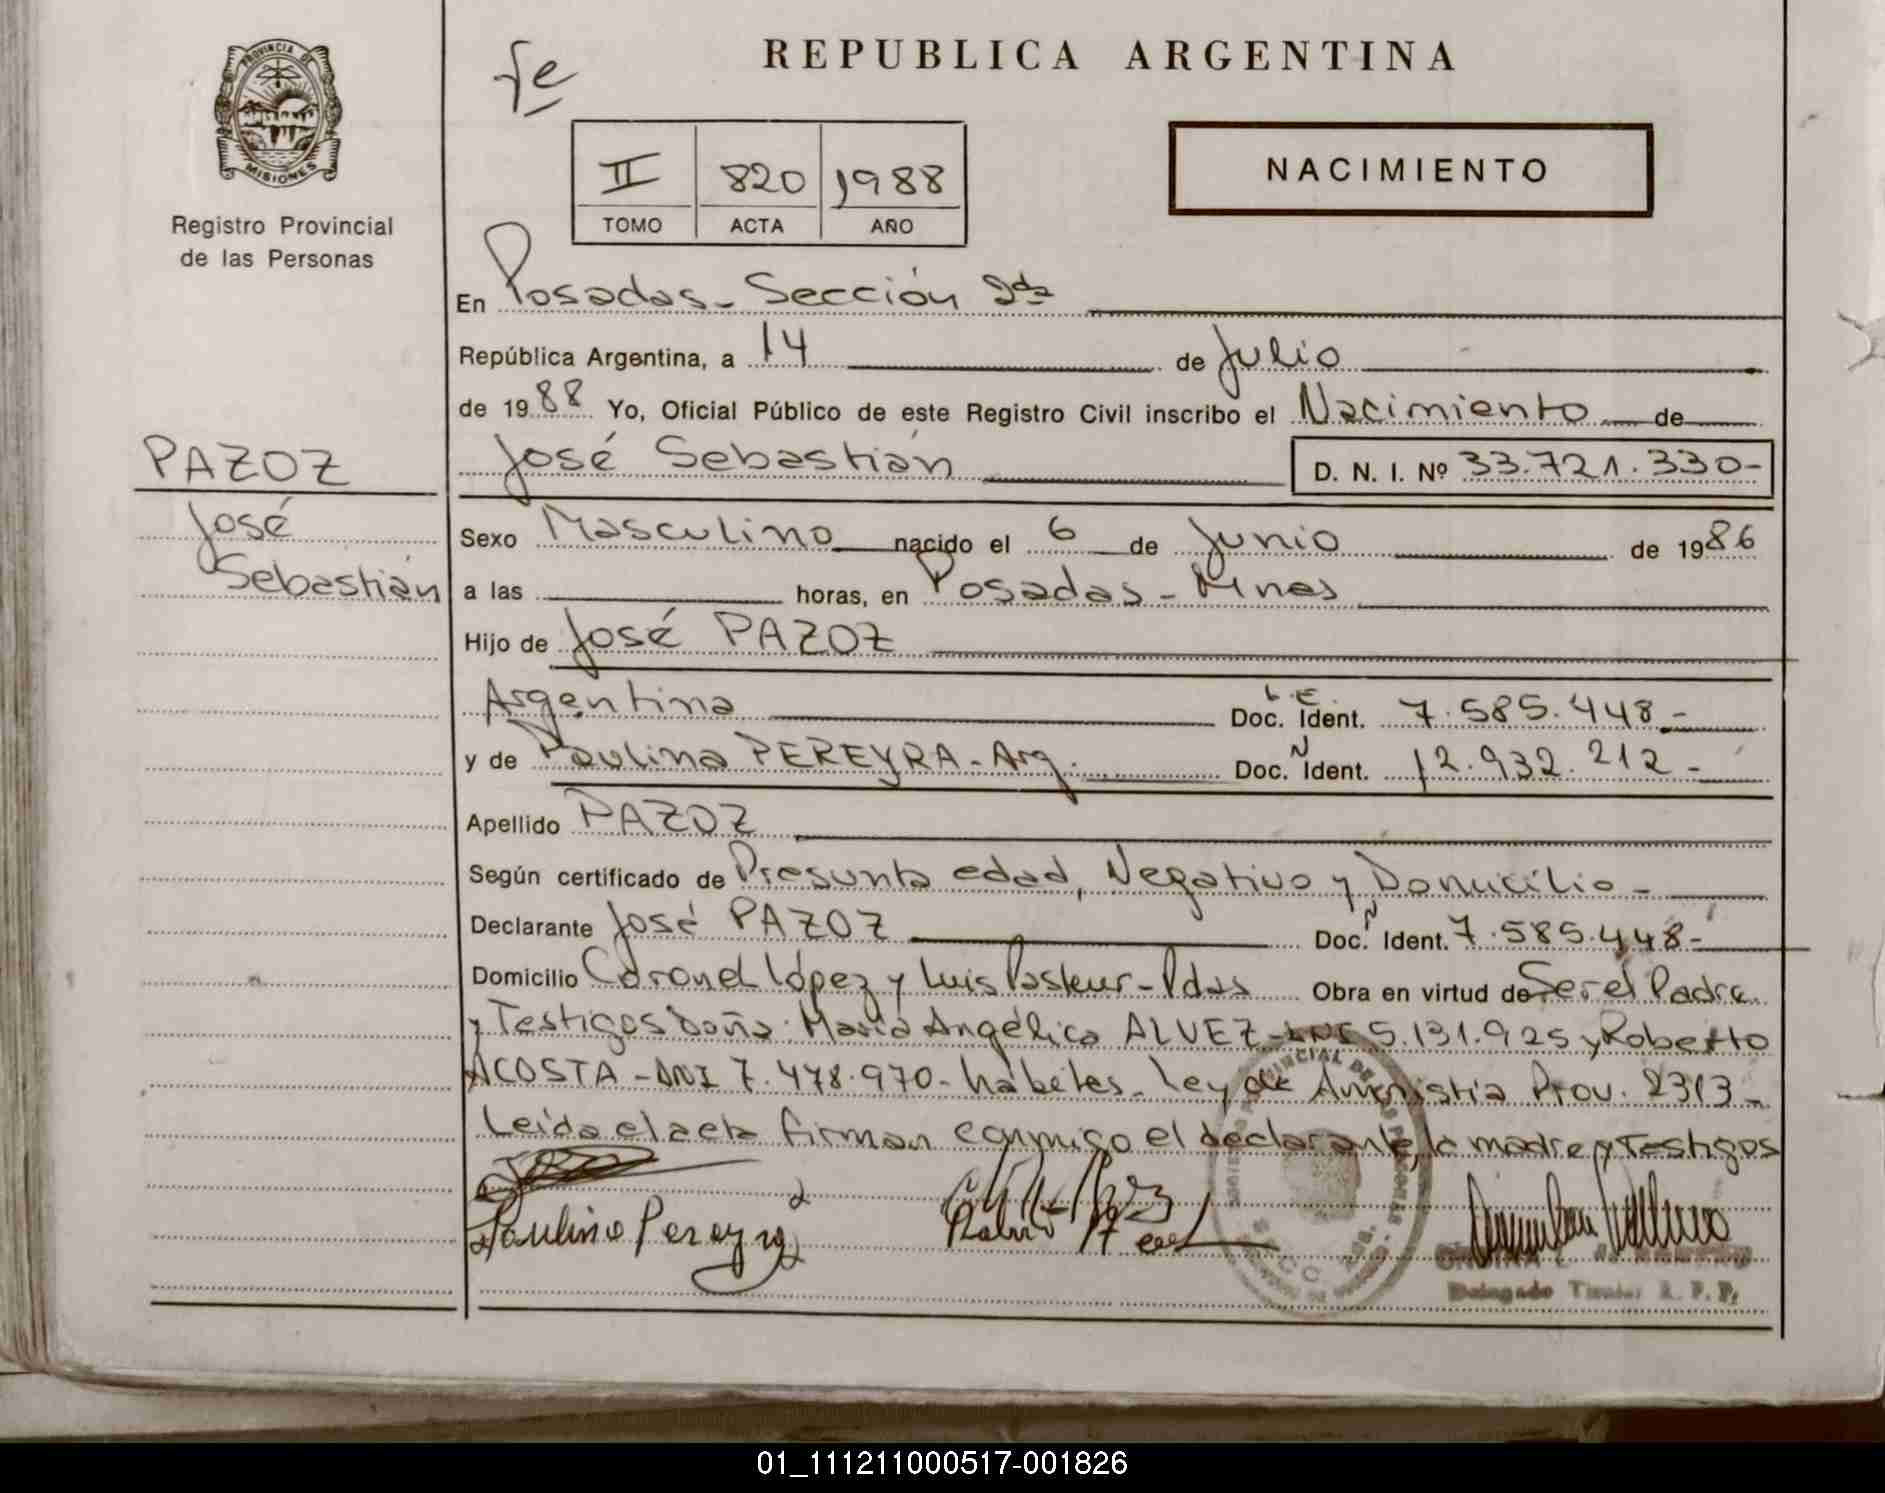 PROVINCIA DE
MISIONES
Registro Provincial
de las Personas
fe
REPUBLICA ARGENTINA
II 820 1988
TOMO ACTA AÑO
NACIMIENTO
En Posadas - Sección 2da
República Argentina, a 14 de Julio
de 1988 Yo, Oficial Público de este Registro Civil inscribo el Nacimiento de
PAZOZ
José
Sebastián
José Sebastián D. N. I. Nº 33.721.330-
Sexo Masculino nacido el 6 de Junio de 1986
a las horas, en Posadas - Mnes
Hijo de José PAZOZ
Argentina L.E. Doc. Ident. 7.585.448-
y de Paulina PEREYRA - Arg. Doc. Ident. 12.932.212-
Apellido PAZOZ
Según certificado de Presunta edad, Negativo y Domicilio -
Declarante José PAZOZ Doc. Ident. 7.585.448-
Domicilio Coronel López y Luis Pasteur - Pdas Obra en virtud de Ser el Padre
y Testigos Doña María Angélica ALVEZ - 5.131.925 y Roberto
ACOSTA - DNI 7.478.970 - hábiles - Ley de Amnistía Prov. 2313 -
Leida el acta firman conmigo el declarante, la madre y Testigos
Paulina Pereyra
Delegado Titular R. P. P.
01_111211000517-001826